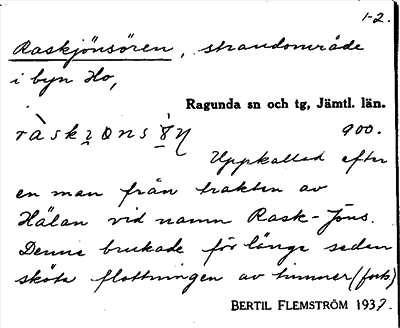 1-2.
Raskjönsören, strandområde
i byn Ho,
Ragunda sn och tg, Jämtl. län.
900.
Uppkallad efter
en man från trakten av
Hälan vid namn Rask-Jöns.
Denne brukade för länge sedan
sköta flottningen av timmer (forts)
BERTIL FLEMSTRÖM 1937.